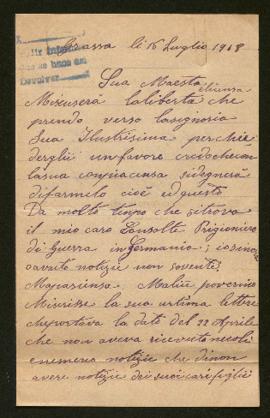 Brassa lì 16 Luglio 1918
Devolver
Sua Maestà
Miscuserà la libertà che
prendo verso la signoria
Sua Ilustrisima per chie
dergli un favore credo che con
la sua compiacensa si degnerà
di farmelo cioè ed questo
Da molto tempo che si trova
il mio caro Prigioniero
di Guerra in Germania;
notizie non sovente;
povorino
Mi scrisse la sua urtima lettera
che portava la data del 22 Aprile
che non aveva ricevuto ne soldi
e nemeno notizie che di non
avere notizie dei suoi cari figli